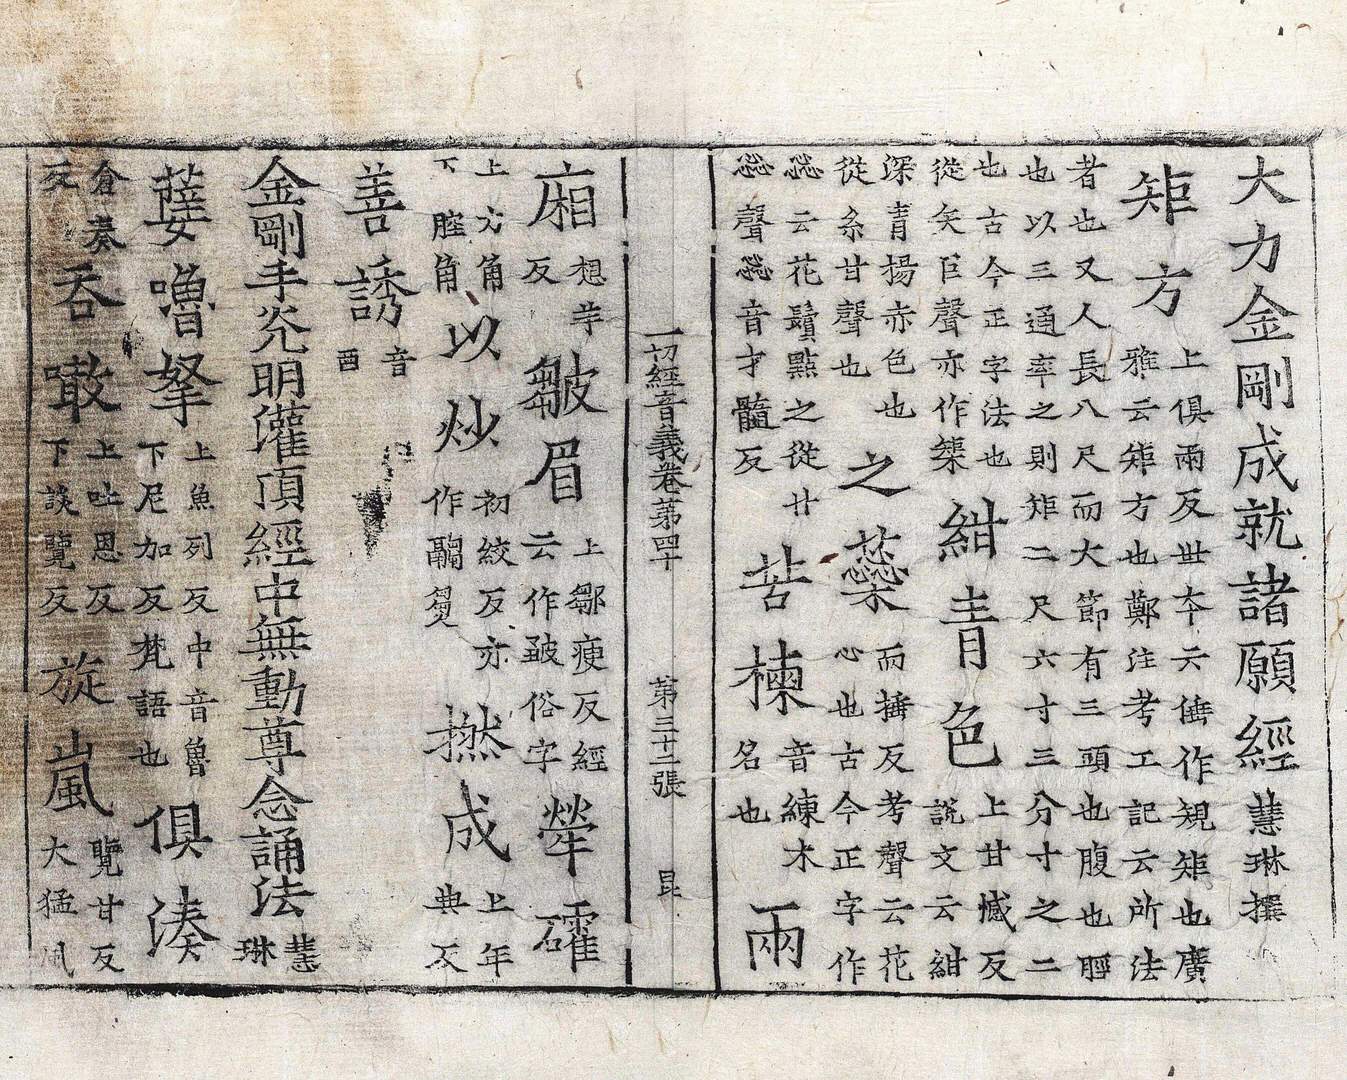 大力金剛成就諸願經慧琳撰
矩方上俱雨反世本云倕作規矩也廣
雅云矩方也鄭注考工記云所法
者也又人長八尺而大節有三頭也腹也脛
也以三通率之則矩二尺六寸三分寸之二
也古今正字法也
從矢巨聲亦作榘紺青色上甘憾反
說文云紺
深青揚赤色也
從糸甘聲也之蘂而捶反考聲云花
心也古今正字作
惢云花鬚點之從廿
惢聲惢音才髓反苦楝音練木
名也兩
一切經音義卷第四十 第三十二張 昆
廂想羊
反皺眉上鄒瘦反經
云作皷俗字犖礭
上力角
下腔角以炒初絞反亦
作䰞㷅撚成上年
典反
善誘音
酉
金剛手光明灌頂經中無動尊念誦法慧
琳
嚕拏上魚列反中音魯
下尼加反梵語也俱湊
倉奏
反呑噉上吐恩反
下談覽反旋嵐覽甘反
大猛風